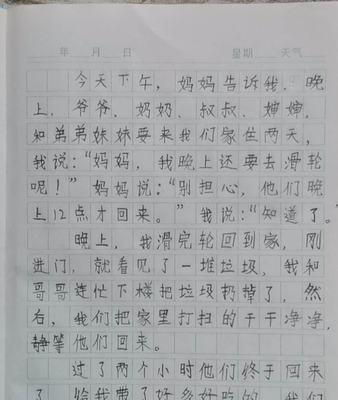 年 月 日 星期 天气
今天下午，妈妈告诉我，晚
上，爷爷、奶奶、叔叔、婶婶，
和弟弟妹妹要来我们家住两天，
我说：“妈妈，我晚上还要去滑轮
呢！”妈妈说：“别担心，他们晚
上12点才回来。”我说：“知道了。
晚上，我滑完轮回到家，刚
进门，就看见了一堆垃圾，我和
哥哥连忙下楼把垃圾扔掉了，然
右，我们把家里打扫的干干净净，
静等他们回来。
过了两个小时他们终于回来
了，给我带了好多好吃的，我们